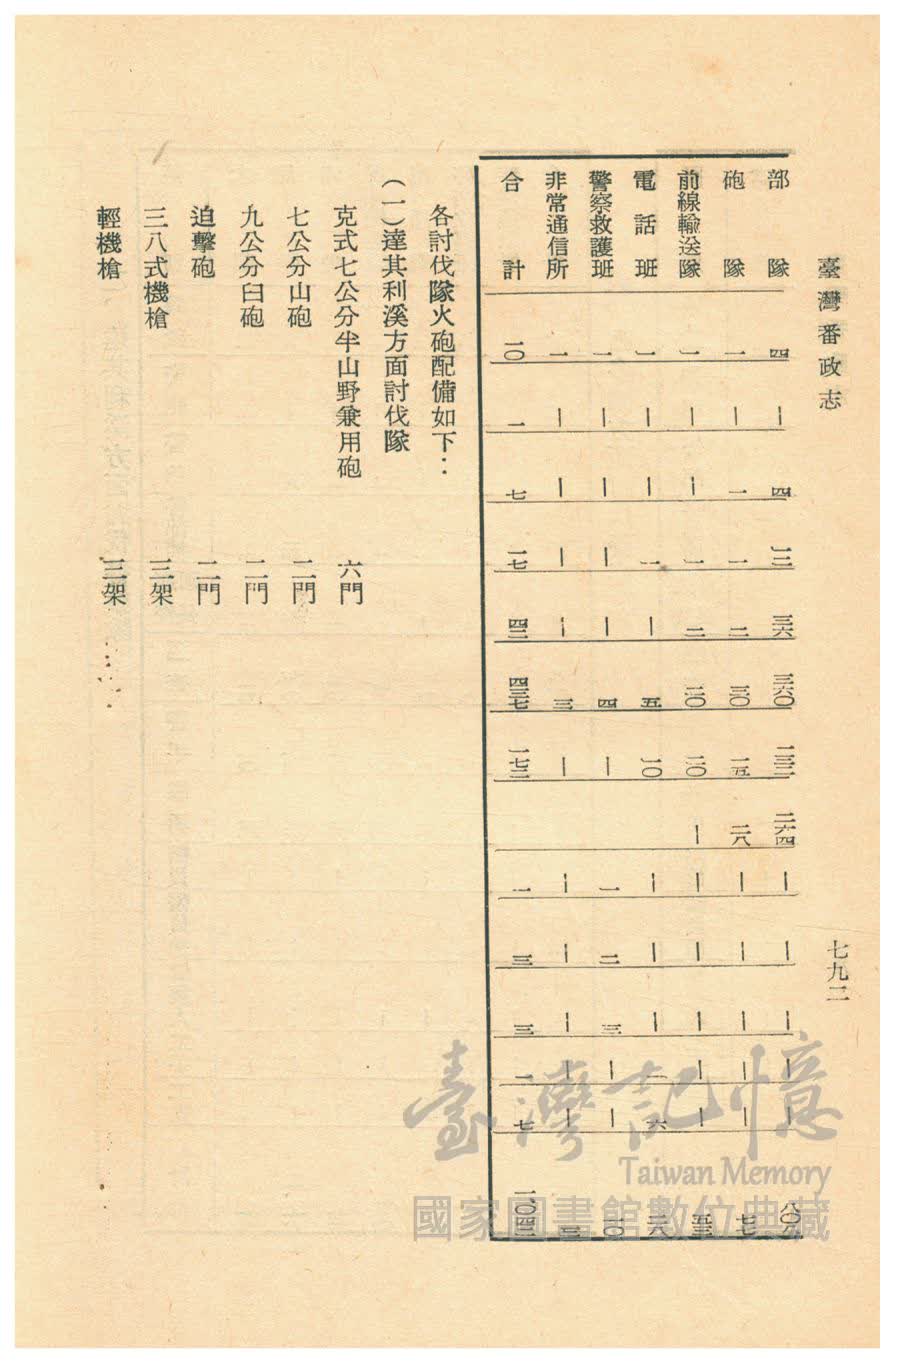 臺灣番政志
七九二
部隊 四 | 四 一三 三六 三六〇 一三二 二六四 | | | | | 八〇八
砲隊 一 | 一 一 二 三〇 一五 二八 | | | | | 七七
前線輸送隊 一 | | 一 二 二〇 二〇 | | | | | |
電話班 一 | | 一 | 五 一〇 | | | 一 六 二八
警察救護班 一 | | | | 四 | 一 二 三 | |
非常通信所 一 | | | | 三 | | | | | |
合計 一〇 一 七 一七 四二 四三七 一七二 一 三 三 一 七 一、〇四三
各討伐隊火砲配備如下:
(一)達其利溪方面討伐隊
克式七公分半山野兼用砲 六門
七公分山砲 二門
九公分臼砲 二門
迫擊砲 二門
三八式機槍 三架
輕機槍 三架
臺灣記憶
Taiwan Memory
國家圖書館數位典藏